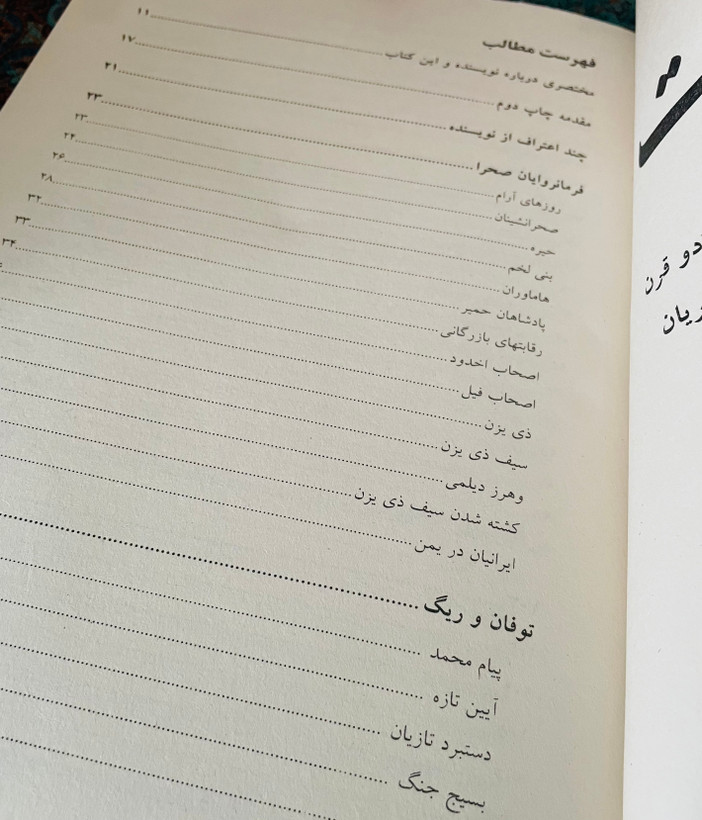 فهرست مطالب
مختصری درباره نویسنده و این کتاب ۱۱
مقدمه چاپ دوم ۱۷
چند اعتراف از نویسنده ۲۱
فرمانروایان صحرا ۲۳
روزهای آرام ۲۳
صحرانشینان ۲۴
حیره ۲۶
بنی لخم ۲۸
هاماوران ۳۲
پادشاهان حمیر ۳۳
رقابتهای بازرگانی ۳۴
اصحاب اخدود
اصحاب فیل
ذی یزن
سیف ذی یزن
وهرز دیلمی
کشته شدن سیف ذی یزن
ایرانیان در یمن
توفان و ریگ
پیام محمد
آیین تازه
دستبرد تازیان
بسیج جنگ
دو قرن